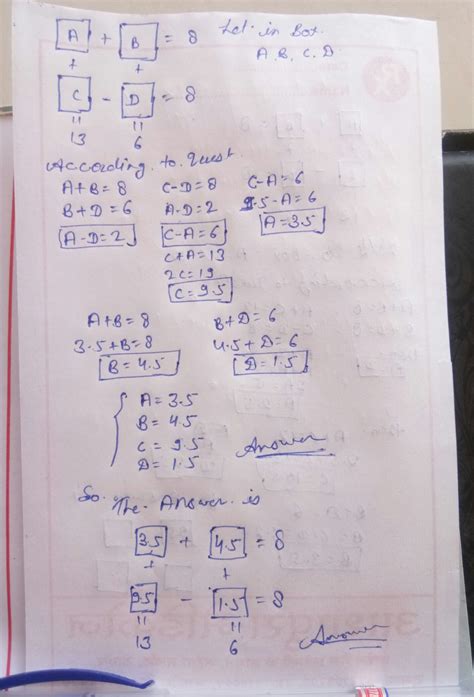 A + B = 8 Let in Box
+ + A, B, C, D.
C - D = 8
= =
13 6
According to Quest.
A+B=8 C-D=8 C-A=6
B+D=6 A-D=2 9.5-A=6
A-D=2 C-A=6 A=3.5
C+A=13
2C=19
C=9.5
A+B=8 B+D=6
3.5+B=8 4.5+D=6
B=4.5 D=1.5
A=3.5
B=4.5
C=9.5
D=1.5
Answer
So. The Answer is
3.5 + 4.5 = 8
+ +
9.5 - 1.5 = 8
= =
13 6
Answer